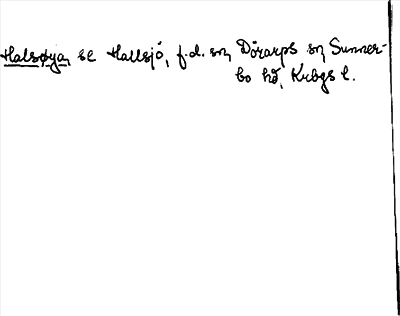 Halsøya, se Hallsjö, f.d. sn, Dörarps sn, Sunner-
bo hd, Krbgs l.